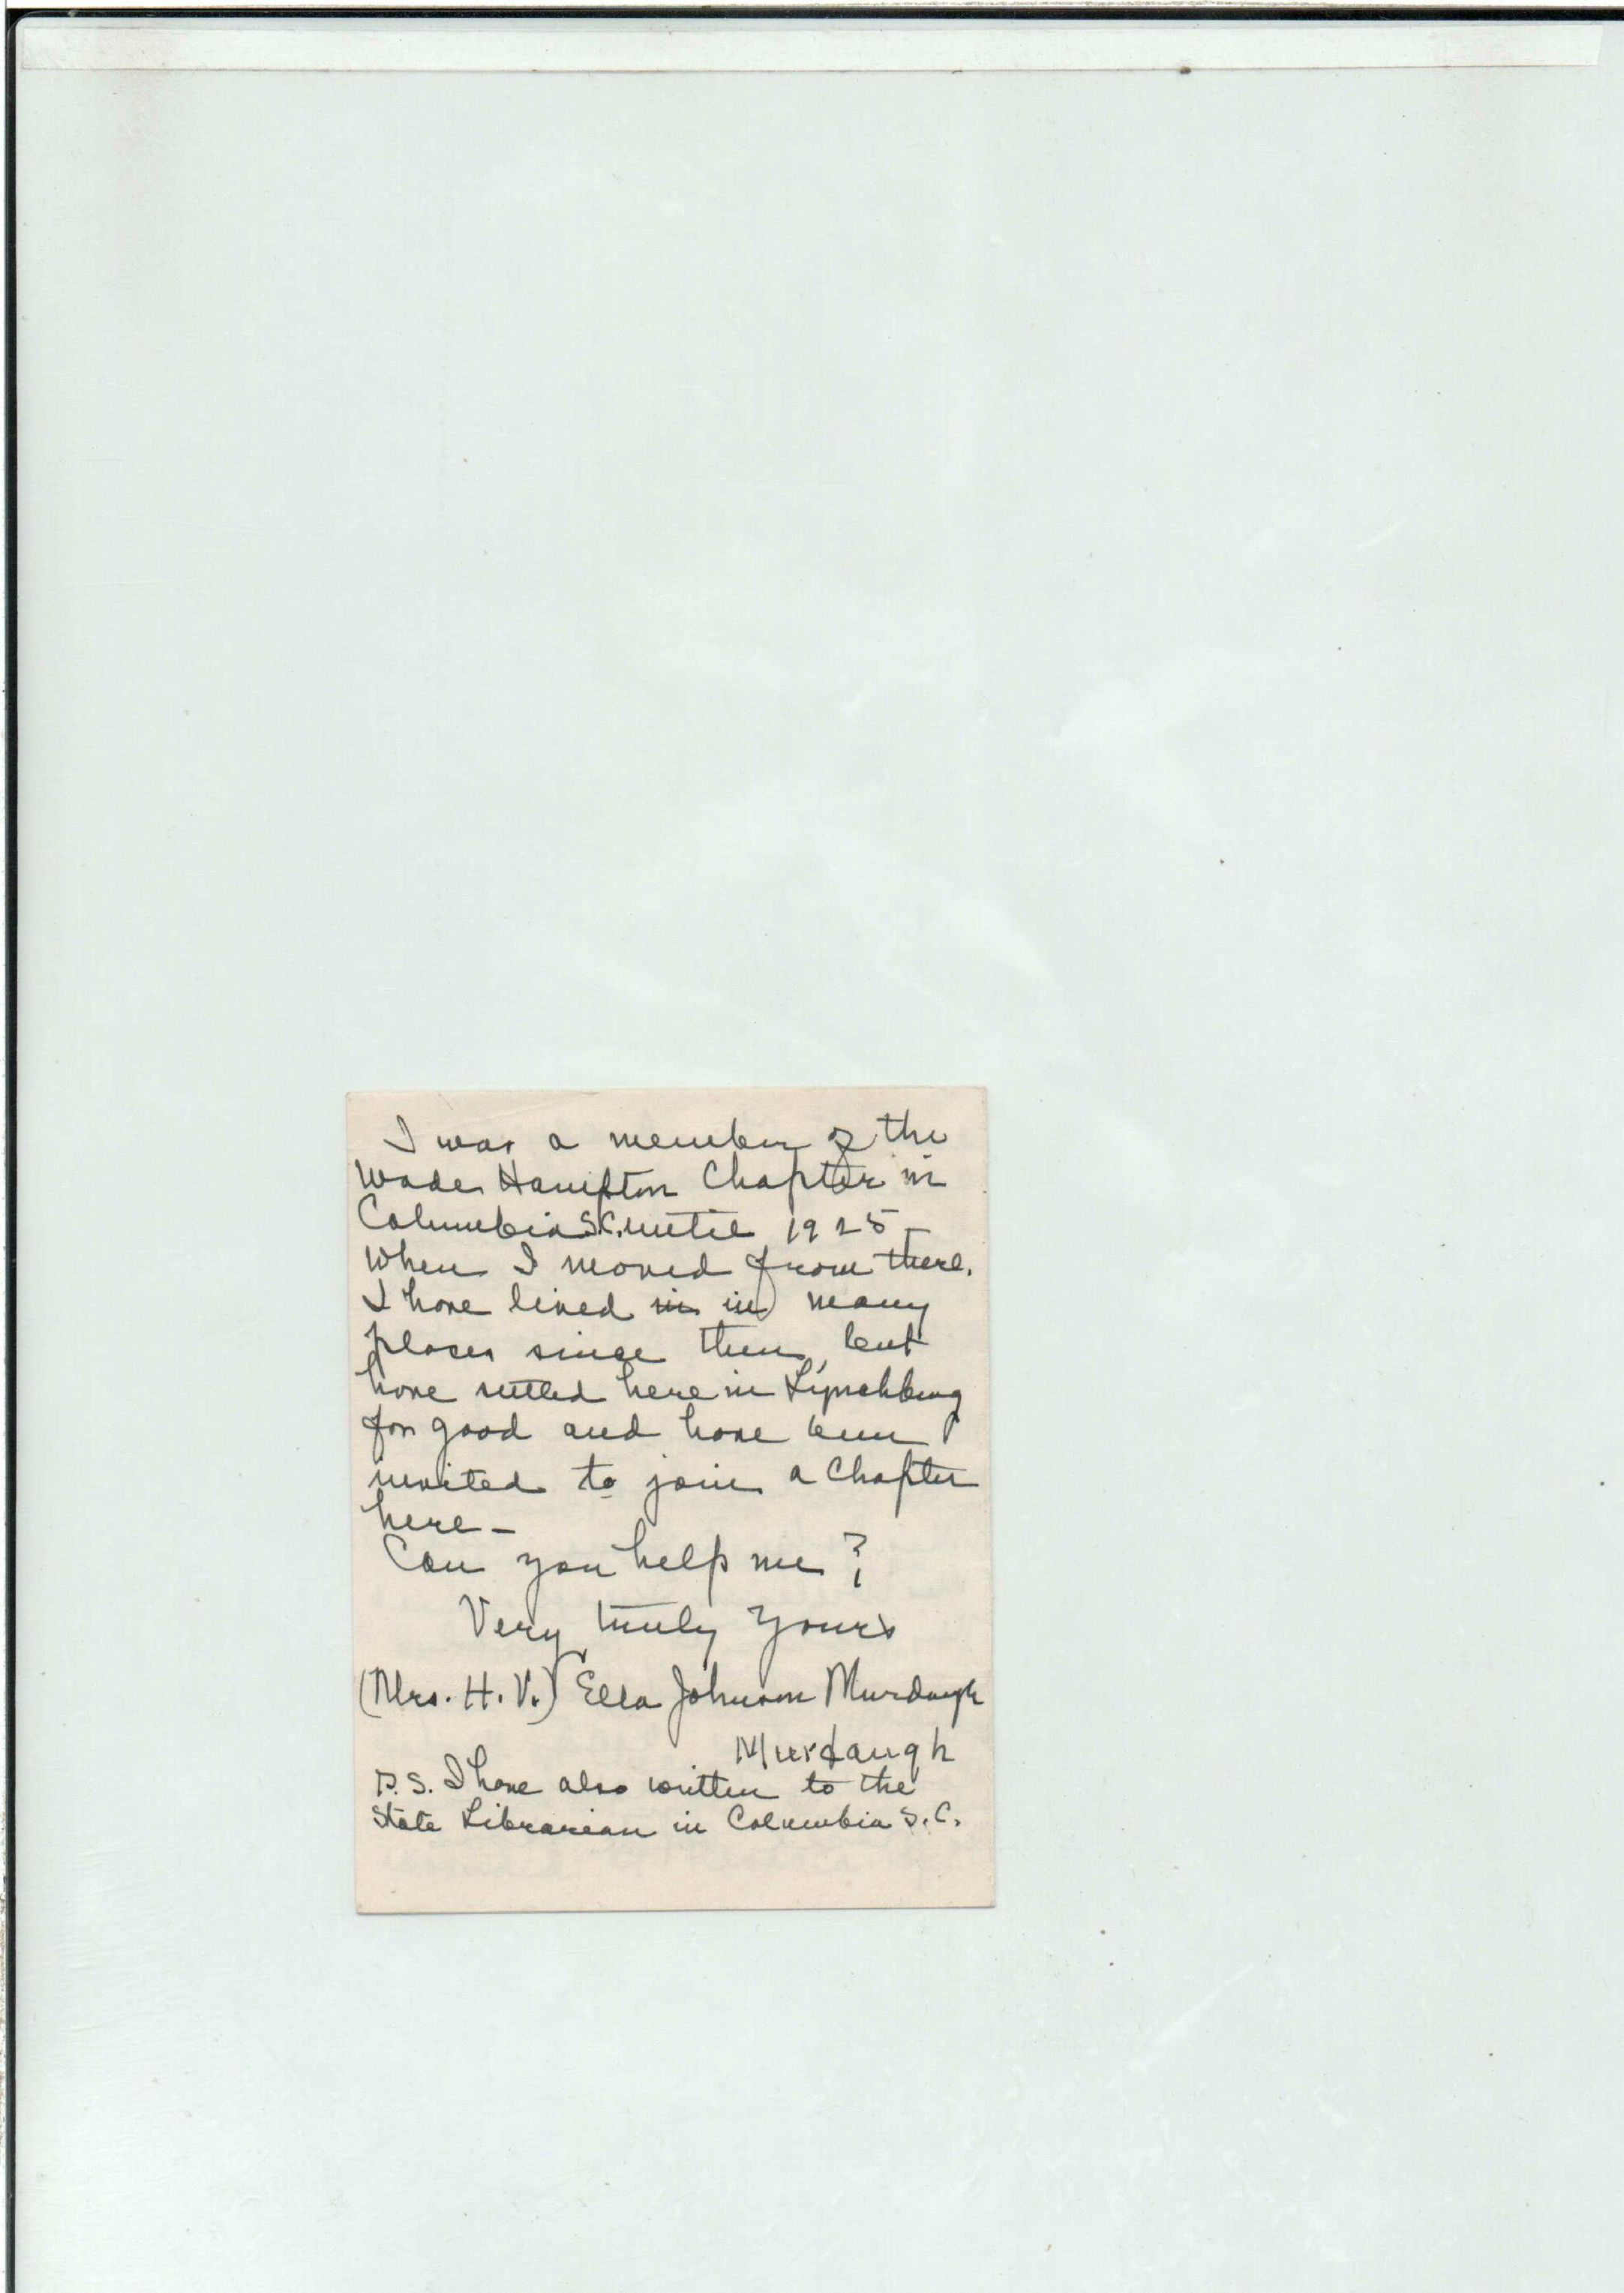 I was a member of the
Wade Hampton Chapter in
Columbia S.C. until 1925 –
When I moved from there.
I have lived in in many
places since then, but
have settled here in Lynchburg
for good and have been
invited to join a Chapter
here –
Can you help me?
Very truly yours
(Mrs. H. V.) Ella Johnson Murdaugh
Murdaugh
P.S. I have also written to the
State Librarian in Columbia S.C.